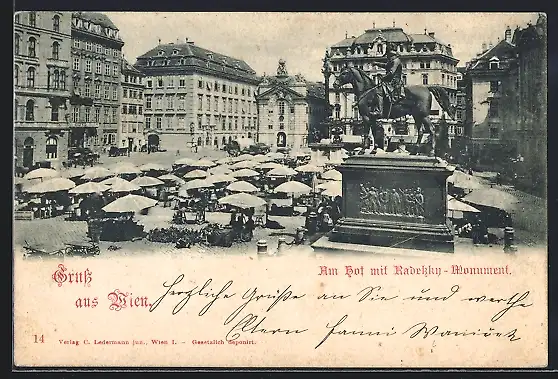 Gruß
Am Hof mit Radetzky-Monument.
aus Wien,
herzliche Grüße an Sie und werthe
Eltern Fanni
14 Verlag C. Ledermann jun., Wien I. – Gesetzlich deponirt.